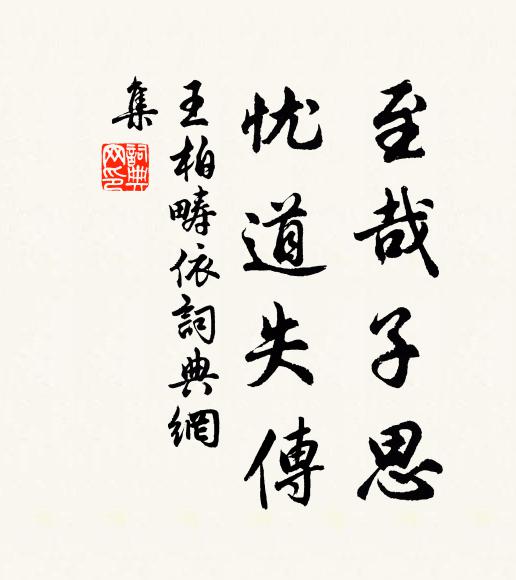 至哉子思
忧道失傳
王柏疇依詞典網
集
詞典網印